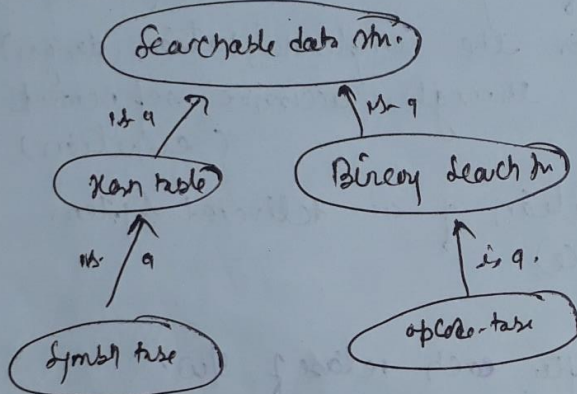 Searchable data str.
is a
is a
Hash table
Binary Search tr
is a
is a.
Symbol table
opcode-table